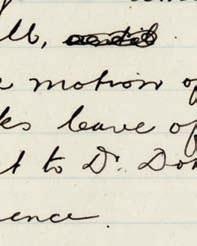 ll,
motion of
ks leave of
t to Dr. Don
ence.